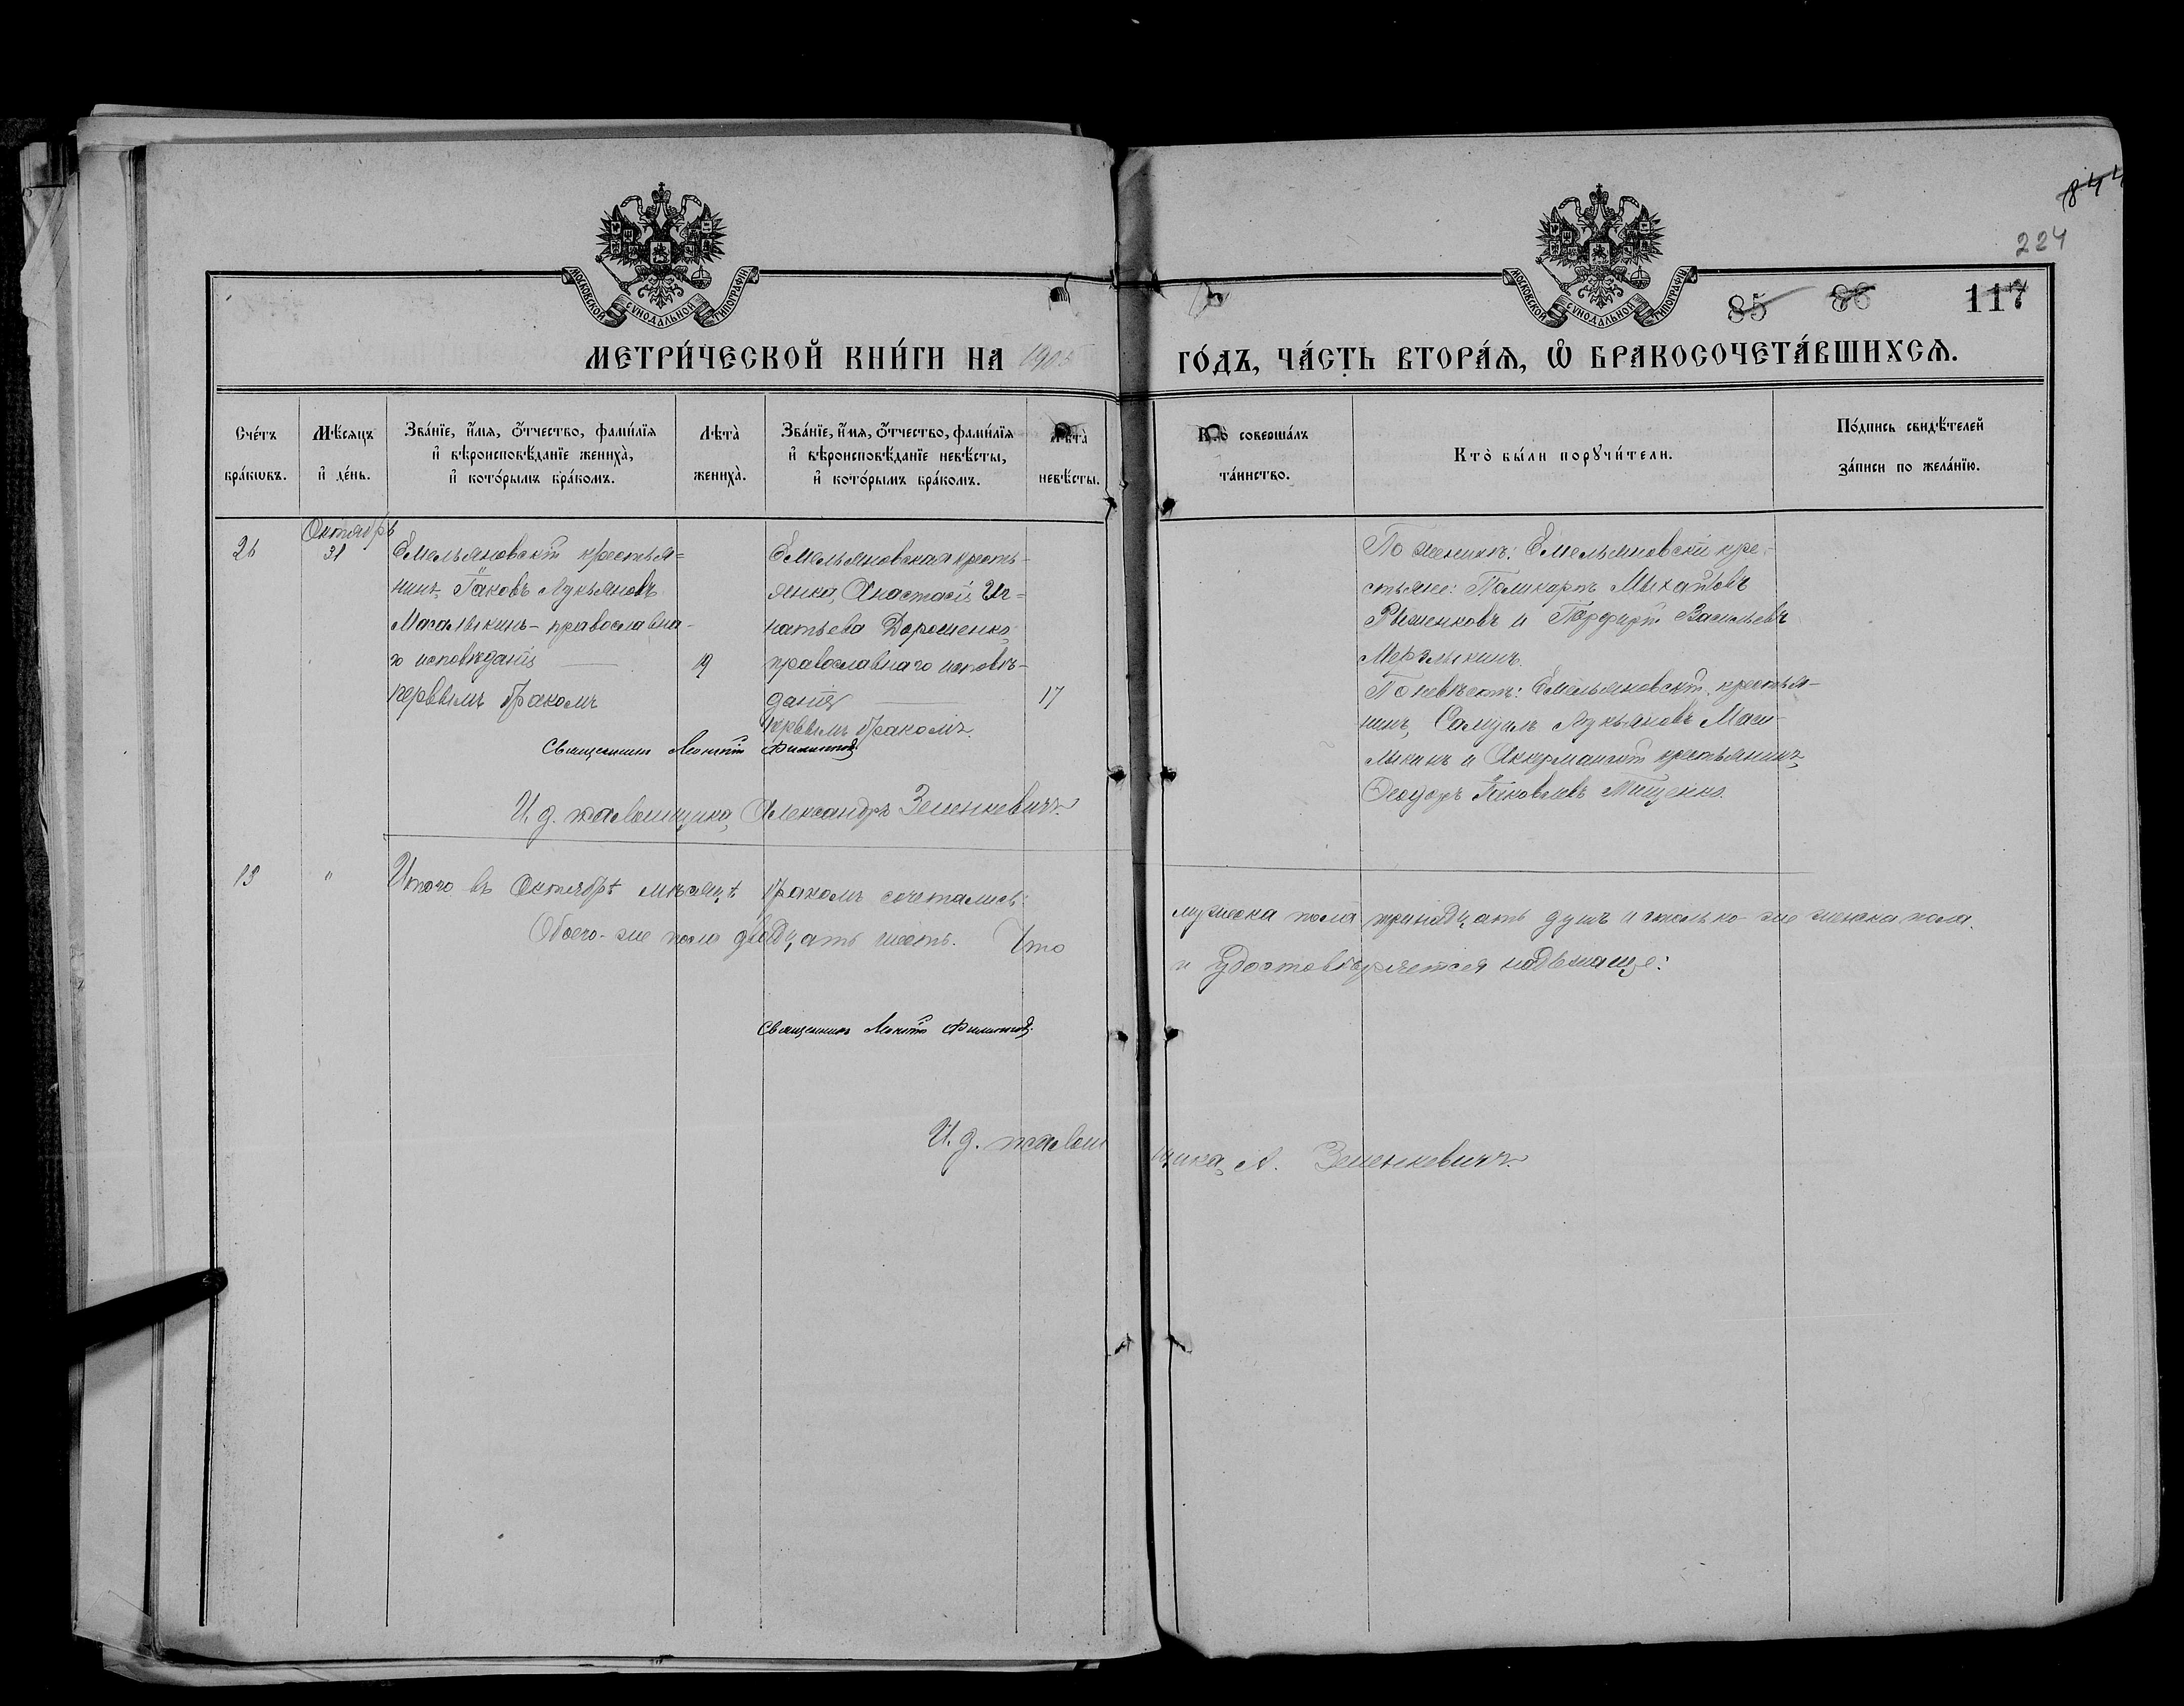 844
224
85 86 117
МОСКОВСКОЙ СѴНОДАЛЬНОЙ ТИПОГРАФІИ
МОСКОВСКОЙ СѴНОДАЛЬНОЙ ТИПОГРАФІИ
МЕТРИ́ЧЕСКОЙ КНИ́ГИ НА 1905 ГО́ДЪ, ЧА́СТЬ ВТОРА́Я, Ѡ҆ БРАКОСОЧЕТА́ВШИХСѦ.
Сче́тъ бра́кѡвъ.
Мѣ́сяцъ и҆ де́нь.
Зва́нїе, и҆́мя, ѻ҆́тчество, фами́лїя и҆ вѣроисповѣ́данїе жениха̀, и҆ кото́рымъ бра́комъ.
Лѣта̀ жениха̀.
Зва́нїе, и҆́мя, ѻ҆́тчество, фами́лїя и҆ вѣроисповѣ́данїе невѣ́сты, и҆ кото́рымъ бра́комъ.
Лѣта̀ невѣ́сты.
Кто̀ соверша́лъ та́инство.
Кто̀ бы́ли порꙋчи́тели.
По́дпись свидѣ́телей за́писи по жела́нїю.
26
Октябрь
31
Емельяновскій крестья-
нинъ, Іаковъ Лукьяновъ
Магалыкинъ - православна-
го исповѣданія
первымъ бракомъ
19
Емельяновская кресть-
янка, Анастасія Иг-
натьева Дорошенко,
православнаго исповѣ-
данія
первымъ бракомъ.
17
По женихѣ: Емельяновскіи кре-
стьяне: Поликарпъ Михайловъ
Рыженковъ и Порфирій Васильевъ
Мерзлыкинъ.
По невѣстѣ: Емельяновскій крестья-
нинъ, Самуилъ Лукьяновъ Мага-
лыкинъ и Аккерманскій крестьянинъ,
Ѳеодоръ Іаковлевъ Тищенко.
Священникъ Леонтій Филиппов
И. д. псаломщика, Александръ Зеленкевичъ
13 "
Итого въ Октябрѣ мѣсяцѣ бракомъ сочетались: мужеска пола тринадцать душъ и столько-же женска пола.
Обоего-же пола двадцать шесть. Что и удостовѣряется надлежаще:
Священникъ Леонтій Филиппов.
И. д. псаломщика, А. Зеленкевичъ